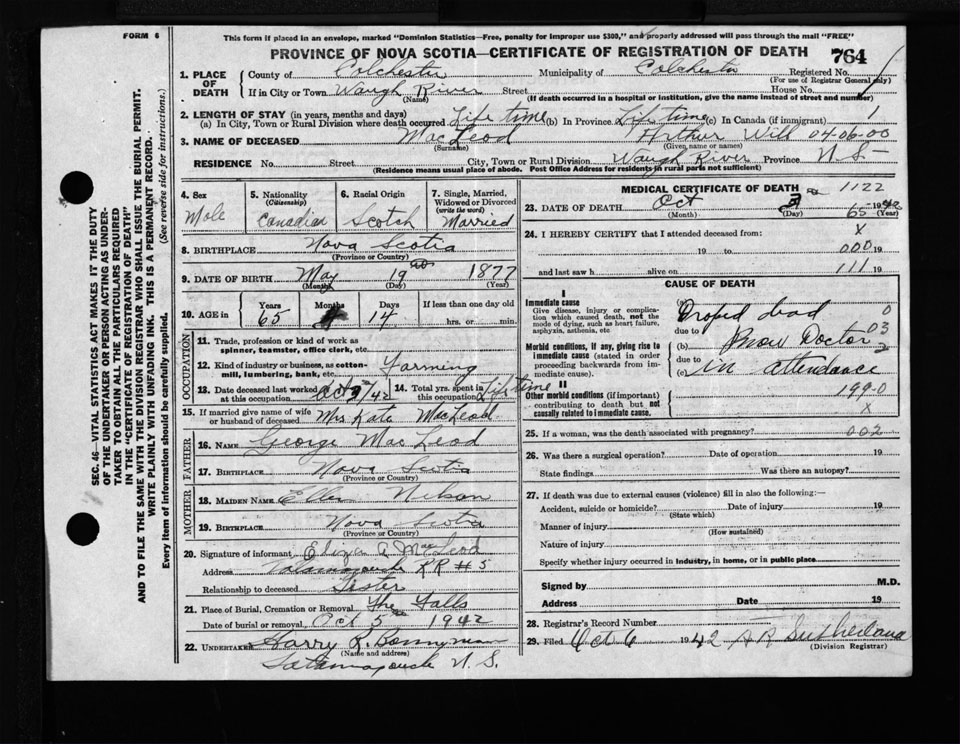 FORM 6
This form if placed in an envelope, marked "Dominion Statistics—Free, penalty for improper use $300," and properly addressed will pass through the mail "FREE"
PROVINCE OF NOVA SCOTIA—CERTIFICATE OF REGISTRATION OF DEATH 764
1. PLACE OF DEATH
County of Colchester Municipality of Colchester Registered No.
(For use of Registrar General only)
If in City or Town Waugh River Street House No.
(Name) (If death occurred in a hospital or institution, give the name instead of street and number)
2. LENGTH OF STAY (in years, months and days)
(a) In City, Town or Rural Division where death occurred Life time (b) In Province Lifetime (c) In Canada (if immigrant) 1
3. NAME OF DECEASED MacLeod Arthur Will 04-06-00
(Surname) (Given name or names)
RESIDENCE No. Street City, Town or Rural Division Waugh River Province N.S—
(Residence means usual place of abode. Post Office Address for residents in rural parts not sufficient)
4. Sex Male
5. Nationality (Citizenship) Canadian
6. Racial Origin Scotch
7. Single, Married, Widowed or Divorced (write the word) Married
8. BIRTHPLACE Nova Scotia
(Province or Country)
9. DATE OF BIRTH May 19 1877
(Month) (Day) (Year)
10. AGE in Years 65 Months Days 14 If less than one day old hrs. or min.
OCCUPATION
11. Trade, profession or kind of work as spinner, teamster, office clerk, etc.
12. Kind of industry or business, as cotton-mill, lumbering, bank, etc. Farming
13. Date deceased last worked at this occupation Oct 2/42 14. Total yrs. spent in this occupation Life time
15. If married give name of wife or husband of deceased Mrs Kate MacLeod
FATHER
16. NAME George MacLeod
17. BIRTHPLACE Nova Scotia
(Province or Country)
MOTHER
18. MAIDEN NAME Ellen Nelson
19. BIRTHPLACE Nova Scotia
(Province or Country)
20. Signature of informant A MacLeod
Address Tatamagouche RR #5
Relationship to deceased Sister
21. Place of Burial, Cremation or Removal The Falls
Date of burial or removal Oct 5 1942
22. UNDERTAKER Harry R. Bonnyman
(Name and address)
Tatamagouche N.S.
MEDICAL CERTIFICATE OF DEATH 1122
23. DATE OF DEATH Oct 3 1942
(Month) (Day) 65 (Year)
24. I HEREBY CERTIFY that I attended deceased from: X
19 to 000 19
and last saw h alive on 111 19
CAUSE OF DEATH
I
Immediate cause
Give disease, injury or complication which caused death, not the mode of dying, such as heart failure, asphyxia, asthenia, etc
(a) Droped dead 0
due to 03
Morbid conditions, if any, giving rise to immediate cause (stated in order proceeding backwards from immediate cause).
(b) Know Doctor
due to
(c) in attendance
II
Other morbid conditions (if important) contributing to death but not causally related to immediate cause.
199-0
X
25. If a woman, was the death associated with pregnancy? 002
26. Was there a surgical operation? Date of operation 19
State findings Was there an autopsy?
27. If death was due to external causes (violence) fill in also the following:—
Accident, suicide or homicide? Date of injury 19
(State which)
Manner of injury
(How sustained)
Nature of injury
Specify whether injury occurred in industry, in home, or in public place
Signed by M.D.
Address Date 19
28. Registrar's Record Number
29. Filed Oct 6 1942 A R Sutherland
(Division Registrar)
SEC. 46—VITAL STATISTICS ACT MAKES IT THE DUTY
OF THE UNDERTAKER OR PERSON ACTING AS UNDER-
TAKER TO OBTAIN ALL THE PARTICULARS REQUIRED
IN THE "CERTIFICATE OF REGISTRATION OF DEATH"
AND TO FILE THE SAME WITH THE DIVISION REGISTRAR WHO SHALL ISSUE THE BURIAL PERMIT.
WRITE PLAINLY WITH UNFADING INK. THIS IS A PERMANENT RECORD.
Every item of information should be carefully supplied. (See reverse side for instructions.)